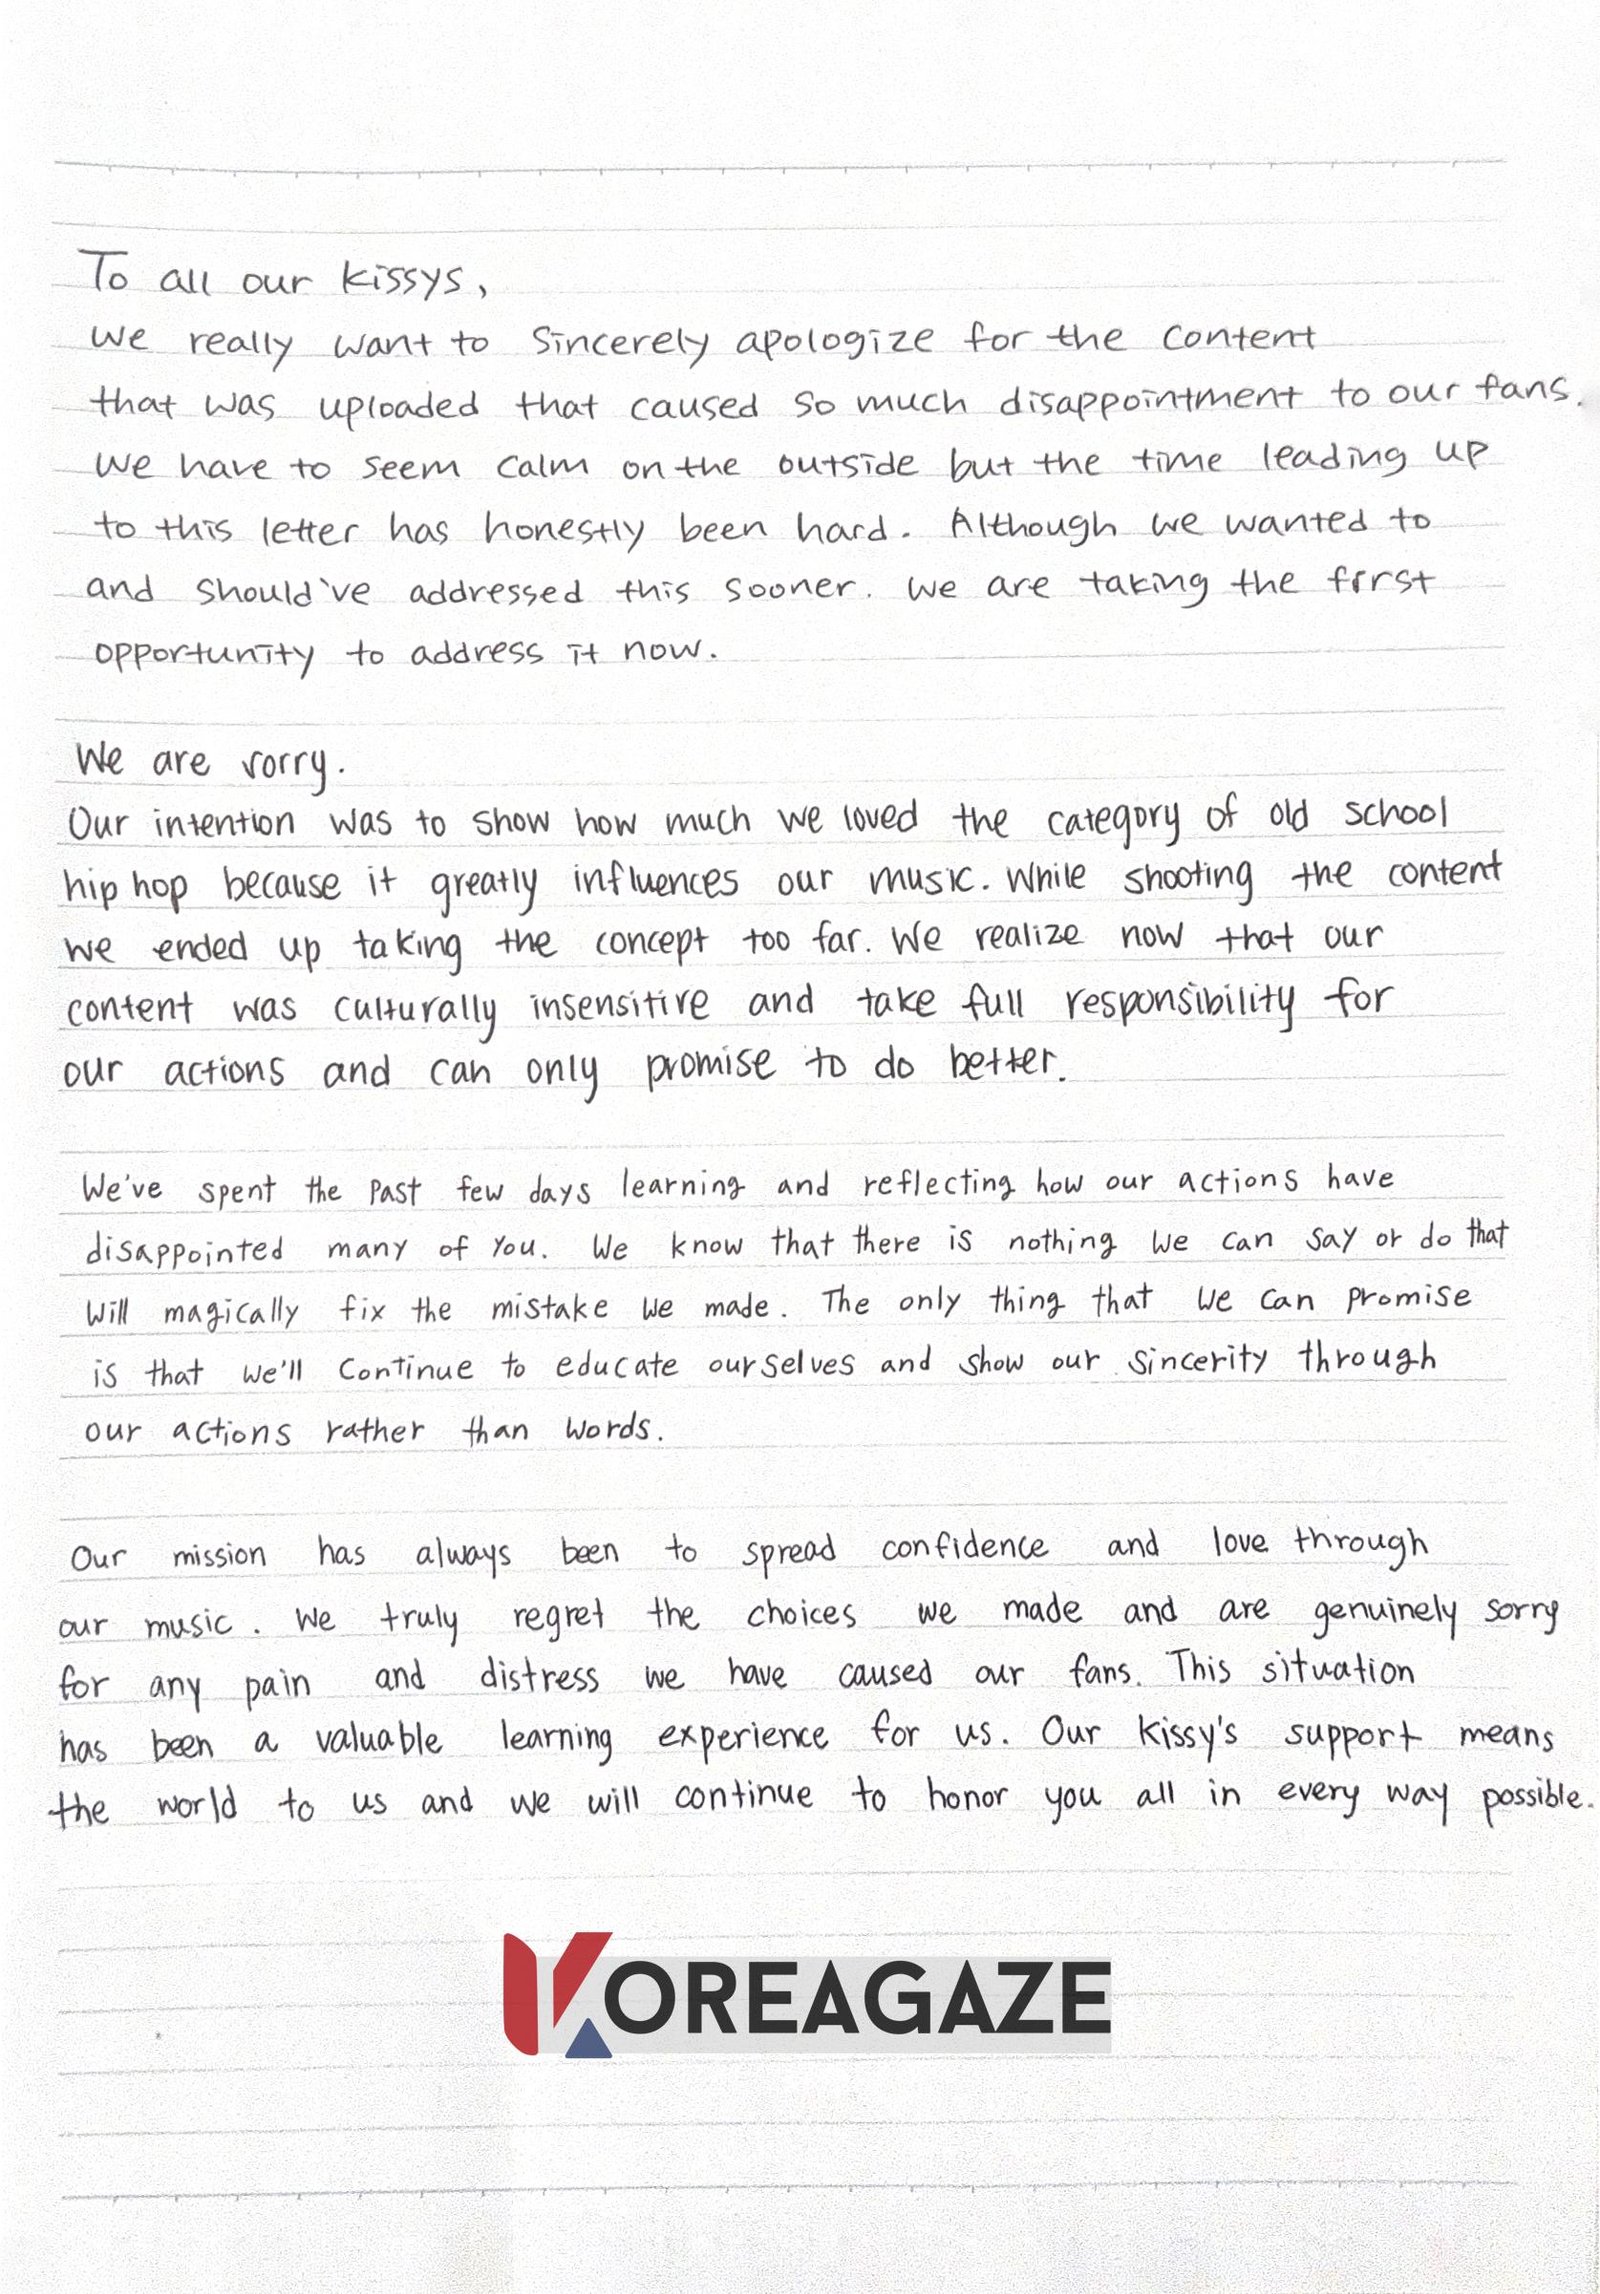 To all our kissys,
We really want to sincerely apologize for the content
that was uploaded that caused so much disappointment to our fans.
We have to seem calm on the outside but the time leading up
to this letter has honestly been hard. Although we wanted to
and should've addressed this sooner. We are taking the first
opportunity to address it now.
We are sorry.
Our intention was to show how much we loved the category of old school
hip hop because it greatly influences our music. While shooting the content
we ended up taking the concept too far. We realize now that our
content was culturally insensitive and take full responsibility for
our actions and can only promise to do better.
We've spent the past few days learning and reflecting how our actions have
disappointed many of you. We know that there is nothing we can say or do that
will magically fix the mistake we made. The only thing that we can promise
is that we'll continue to educate ourselves and show our sincerity through
our actions rather than words.
Our mission has always been to spread confidence and love through
our music. We truly regret the choices we made and are genuinely sorry
for any pain and distress we have caused our fans. This situation
has been a valuable learning experience for us. Our kissy's support means
the world to us and we will continue to honor you all in every way possible.
KOREAGAZE